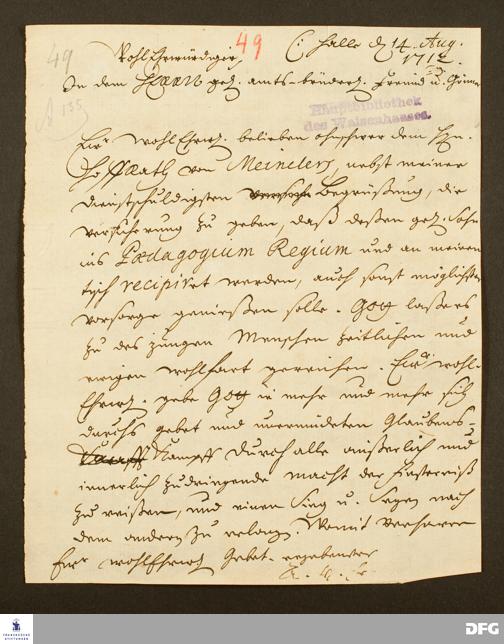 49
49
Wohl Ehrwürdiger,
C: Halle d 14. Aug.
1712.
In dem HERRN gel. amts-bruder, Freund u. Gönner
135
Hauptbibliothek
des Waisenhauses.
Ewr wohl Ehrw. belieben ohnschwer dem Hrn.
Hoffrath von Meinders, nebst meiner
dienstschuldigsten Begrüßung, die
versicherung zu geben, daß deßen gel. Sohn
ins Pædagogium Regium und an meinen
tisch recipiret werden, auch sonst möglichsten
vorsorge genießen solle. Gott laße es
zu des jungen Menschen zeitlichen und
ewigen wohlfart gereichen. Ewr wohl-
Ehrw. gebe Gott in mehr und mehr sich
durchs gebet und unermüdeten Glaubens-
Kampff durch alle äußerlich und
innerlich zudringende macht der Finsterniß
zu reißen, und einen Sieg u. Segen nach
dem andern zu erlangen. Womit verharre
Ewr wohlEhrw Gebet. ergebenster
A. H. Fr.
FRANCKESCHE
STIFTUNGEN
DFG